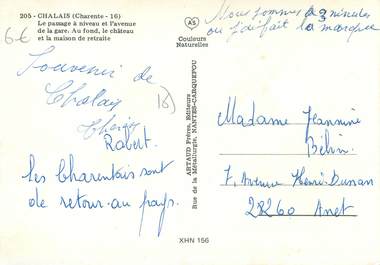 205 - CHALAIS (Charente - 16)
Le passage à niveau et l'avenue
de la gare. Au fond, le château
et la maison de retraite
6€
AS
Couleurs
Naturelles
Nous sommes à 3 minutes
où j'ai fait la marque
Souvenir de
Chalais
Robert.
les Charentais sont
de retour au pays.
ARTAUD Frères, Editeurs
Rue de la Métallurgie, NANTES-CARQUEFOU
Madame Jeannine
Bélin
7, Avenue Henri Dunan
28260 Anet
XHN 156